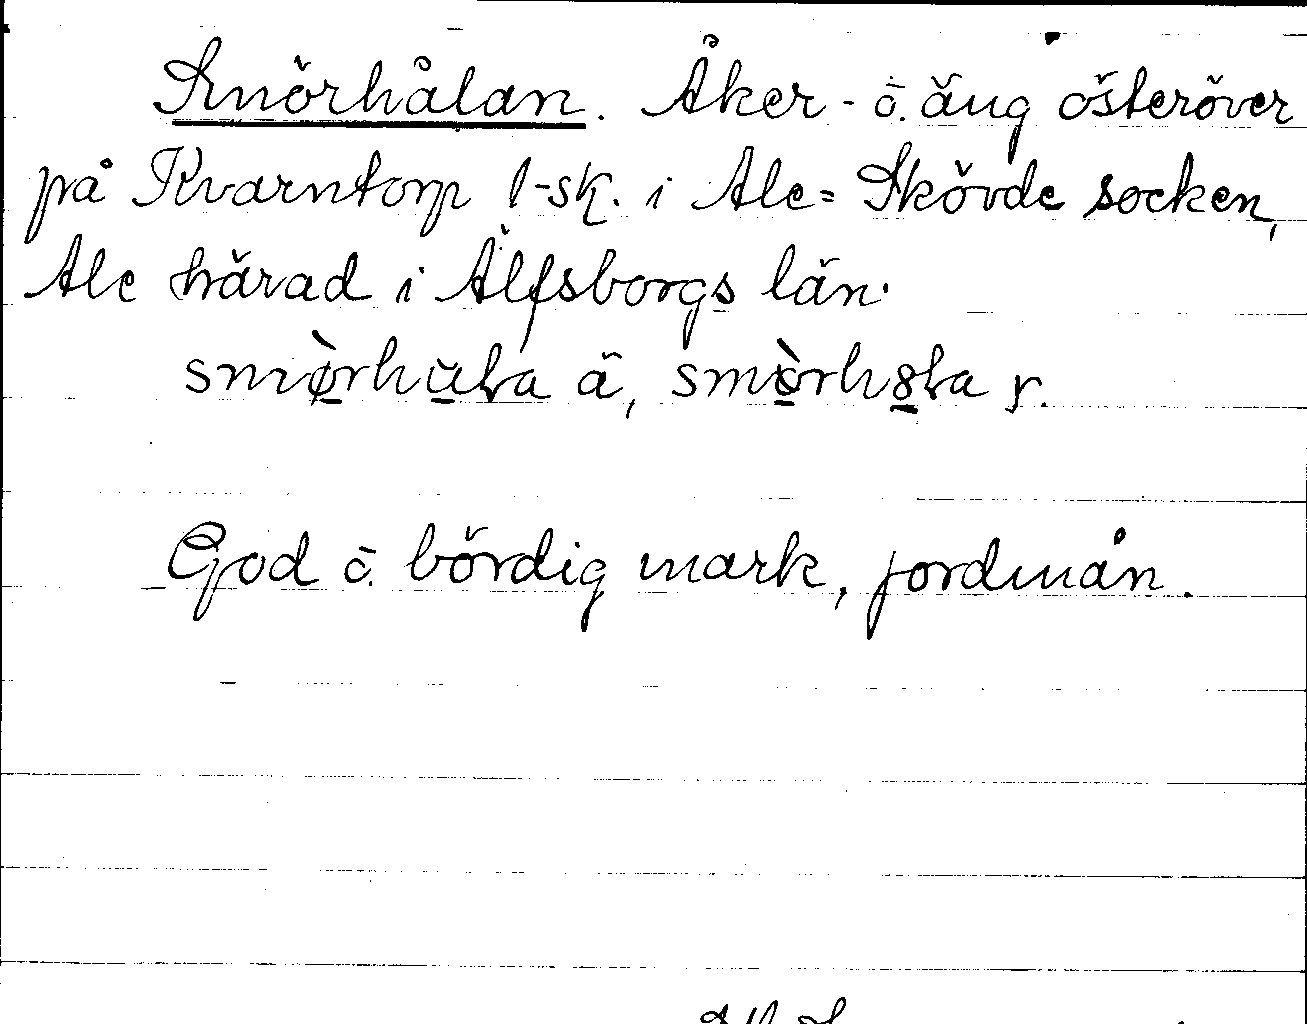 Smörhålan. Åker- o. äng österöver
på Kvarntorp l-sk. i Ale-Skövde socken,
Ale härad i Älfsborgs län.
smø̀rhuła ä, smòrhola y.
God o. bördig mark, jordmån.